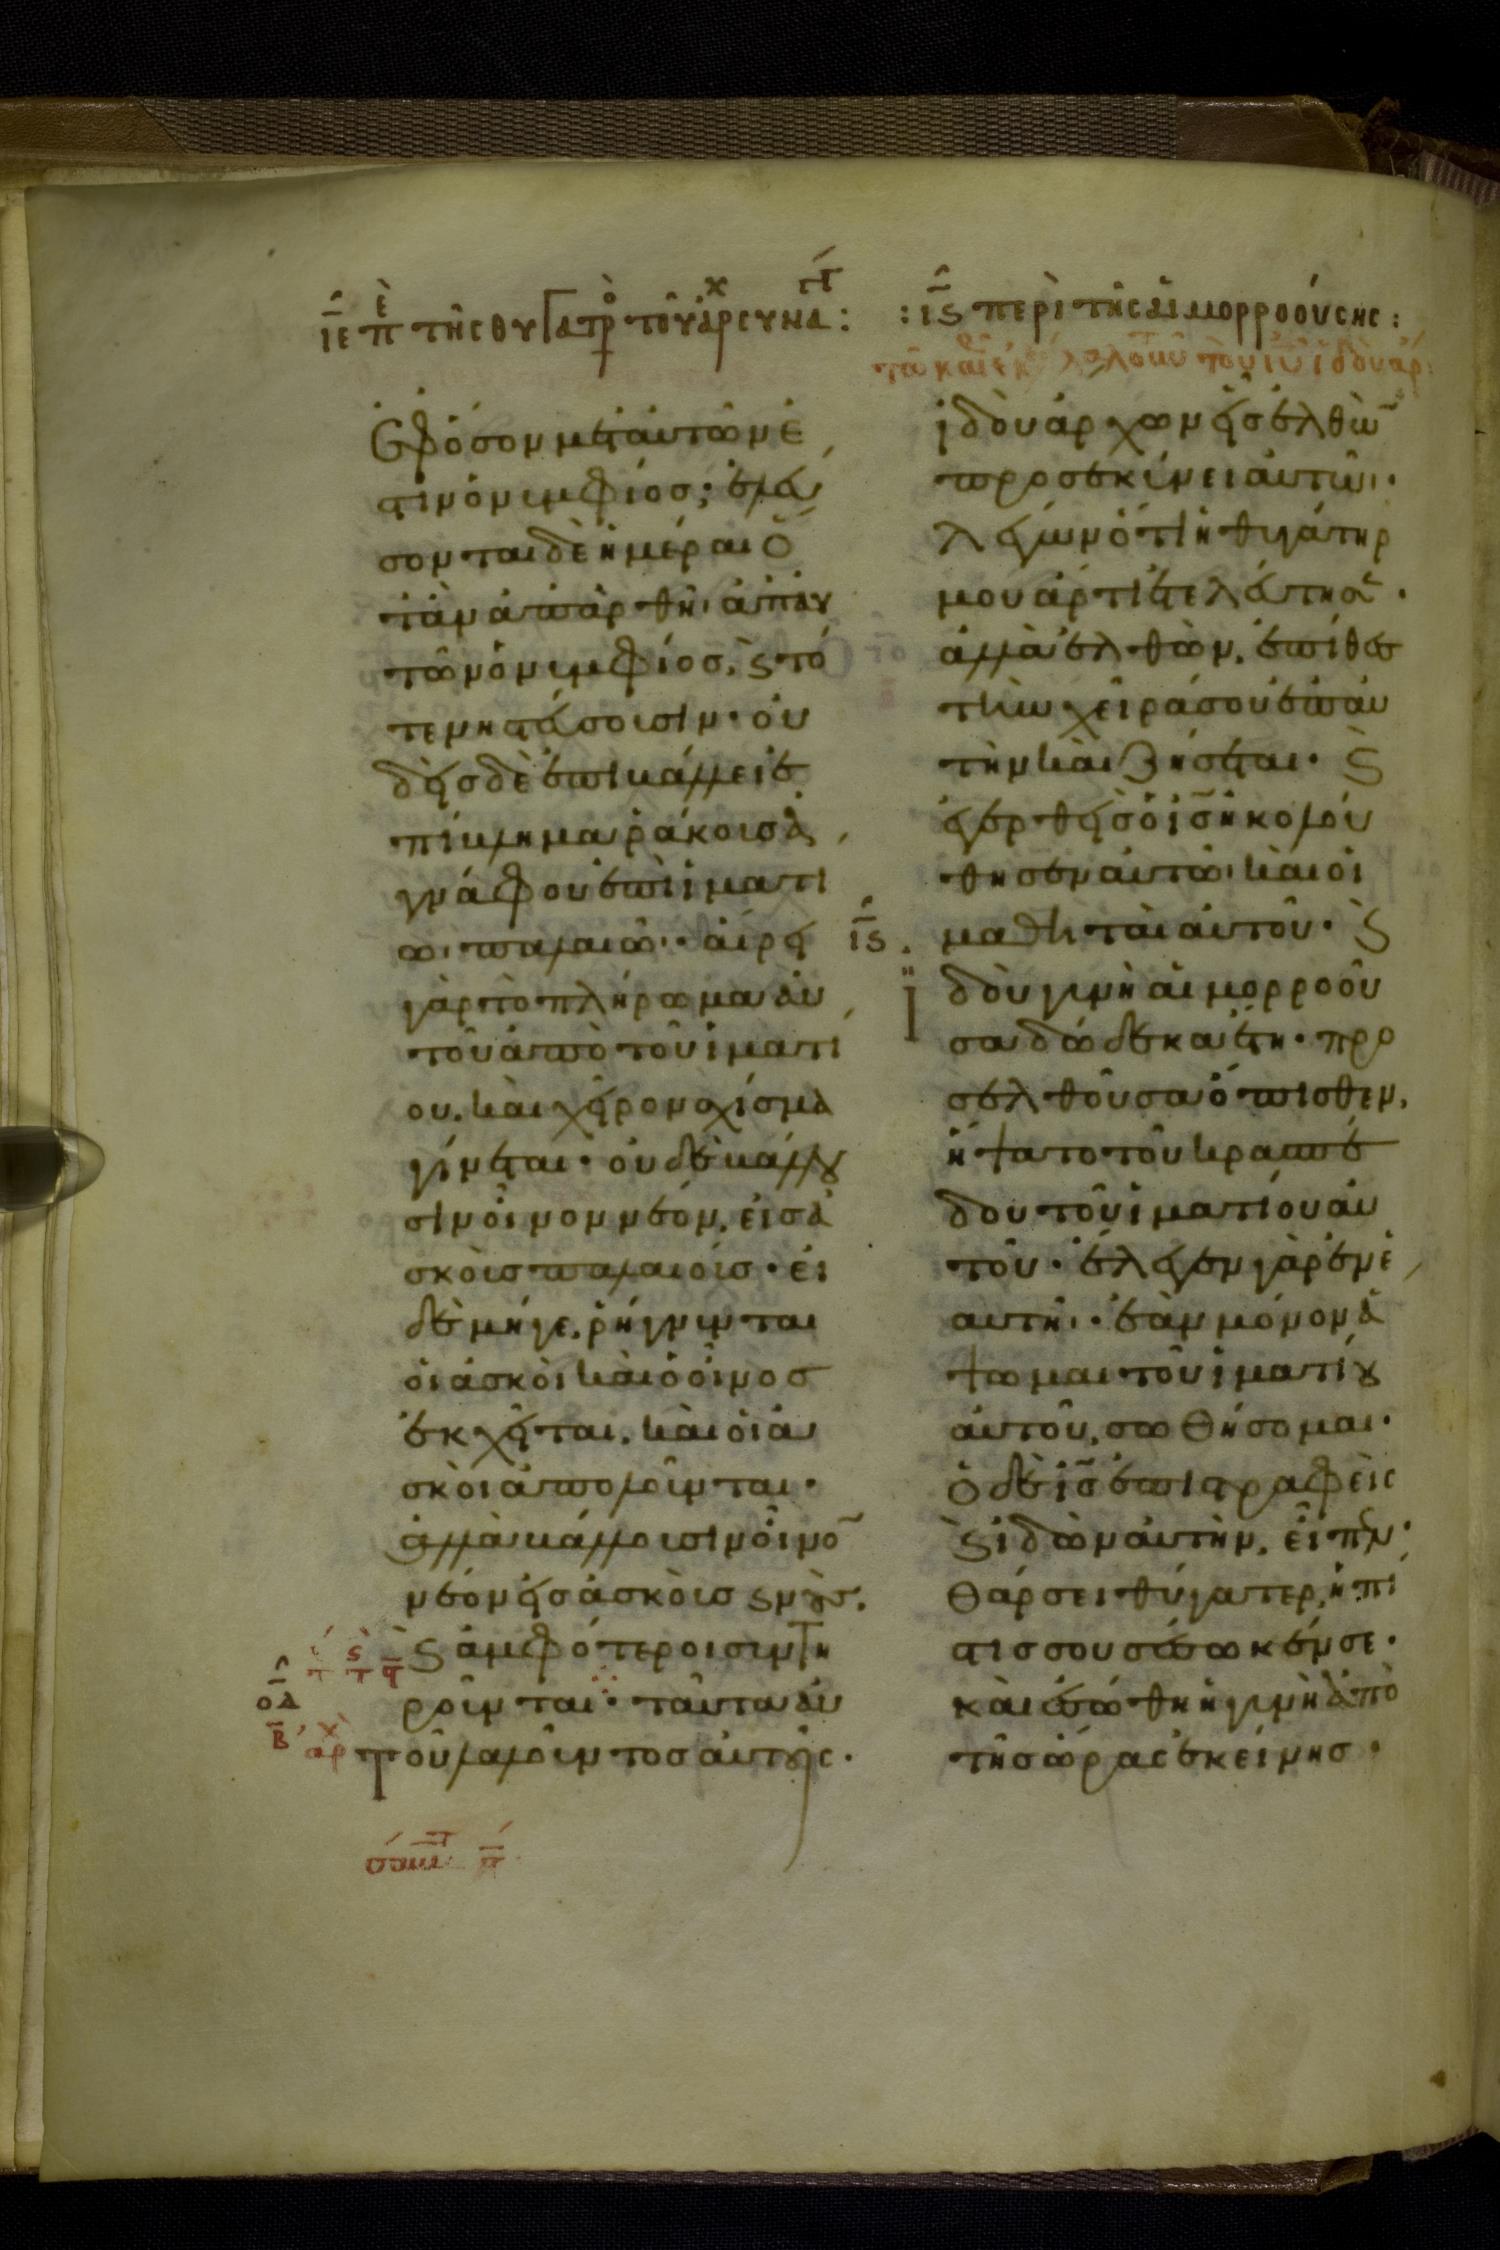 ιε περὶ τῆς θυγατρὸς τοῦ ἀρχισυναγ :
ἐφόσον μετ αὐτῶν ἐ
στιν ὁ νυμφίοσ; ἐλεύ
σονται δὲ ἡμέραι ὅ
ταν ἀπαρθῆ ἀπ αυ
τῶν ὁ νυμφίοσ, ϛ τό
τε νηστεύσουσιν · οὐ
δεὶσ δὲ ἐπικάλλει ἐ
πίκλημα ῥάκουσ ἀ
γνάφου ἐπὶ ἱματί
ω παλαιῶ · αἴρει
γὰρ τὸ πλήρωμα αὐ
τοῦ ἀπὸ τοῦ ἱματί
ου, καὶ χεῖρον σχίσμα
γίνεται · οὐδὲ κάλλου
σιν οἶνον νέον, εἰσ ἀ
σκοὺσ παλαιούσ · εἰ
δὲ μήγε, ῥήγνυνται
οἱ ἀσκοὶ καὶ ὁ οἶνοσ
ἐκχεῖται, καὶ οἱ ἀ
σκοὶ ἀπολοῦνται ·
ἀλλὰ κάλλουσιν οἶνο̄
νέον εἰσ ἀσκοὺσ νέουσ,
ϛ ἀμφότεροι συντη
ροῦνται · ταῦτα αὐ
τοῦ λαλοῦντοσ αὐτοῖς ·
οδ
β
αρχ
: ιϛ περὶ τῆς αἱμορροούσης :
ἰδοὺ ἄρχων εἰσελθὼ̄
προσεκύνει αὐτῶ ·
λέγων ὅτι ἡ θυγάτηρ
μου ἄρτι ἐτελεύτησε̄ ·
ἀλλὰ ἐλθὼν, ἐπίθεσ
τὴν χεῖρά σου ἐπ αὐ
τὴν καὶ ζήσεται · ϛ
ἐγερθεὶσ ὁ ισ̄ ἠκολού
θησεν αὐτῶ καὶ οἱ
ιϛ
μαθηταὶ αὐτοῦ · ϛ
ἰδοὺ γυνὴ αἱμορροοῦ
σα δώδεκα ἔτη · προ
σελθοῦσα ὄπισθεν,
ἥψατο τοῦ κρασπέ
δου τοῦ ἱματίου αὐ
τοῦ · ἔλεγεν γὰρ ἐν ἑ
αυτῆ · ἐὰν μόνον ἅ
ψωμαι τοῦ ἱματίου
αὐτοῦ, σωθήσομαι ·
ὁ δὲ ισ̄ ἐπιστραφεὶς
ϛ ἰδὼν αὐτὴν, εἶπεν ·
θάρσει θύγατερ, ἡ πί
στισ σου σέσωκέν σε ·
καὶ ἐσώθη ἡ γυνὴ ἀπὸ
τῆσ ὥρας ἐκείνησ ·